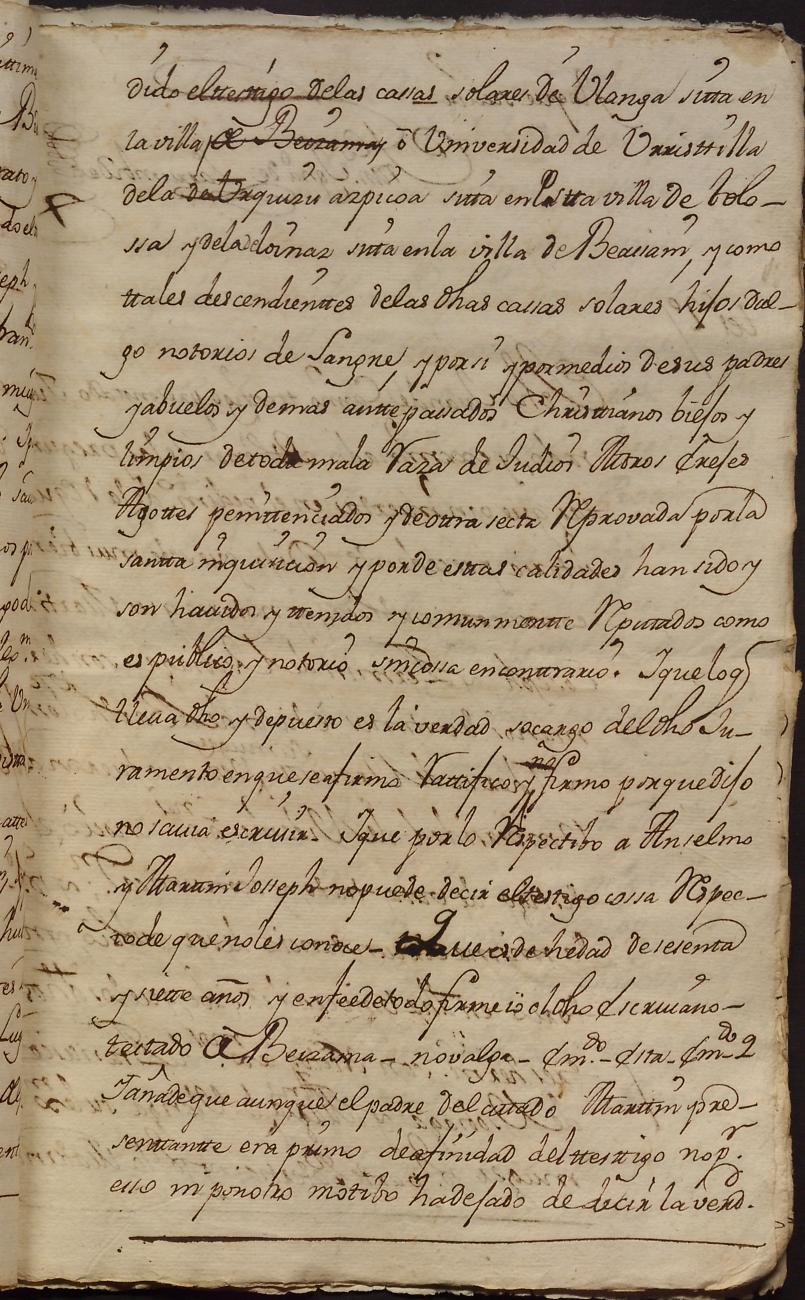 dido el testigo de las cassas solares de Vlanga sitta en
la villa de Beizama o Universidad de Urristtilla
de la de Urquizu azpicoa sitta en esta villa de tolo-
ssa y de la de loinaz sitta en la villa de Beassain, y como
ttales descendienttes de las dhas cassas solares hijos dal-
go notorios de Sangre, y por si y por medios de sus padres
y abuelos y demas antte passados Christtianos biejos y
limpios de toda mala Raza de Judios Moros Erejes
Agottes penittenciados y de otra secta Reprovada por la
santta inquisicion y por de esttas calidades han sido y
son havidos y ttenidos y comunmentte Reputados como
es publico y notorio sin cossa en conttrario. Y que lo q
lleva dho y depuesto es la verdad so cargo del dho Ju-
ramento en que se afirmo Rattifico y no firmo porque dijo
no savia escrivir. Y que por lo Respectibo a Anselmo
y Marttin Joseph no puede decir el testigo cossa Respec-
to de que no les conoce - que es de hedad de sesenta
y siette años y en fee de todo firme io el dho Escrivano -
testado de Beizama - no valga - Enmdo - Esta - Enmdo - q
Y añade que aunque el padre del cittado Marttin pre-
senttantte era primo de afinidad del ttestigo no pr
esso ni por otro motibo ha dejado de decir la verd.